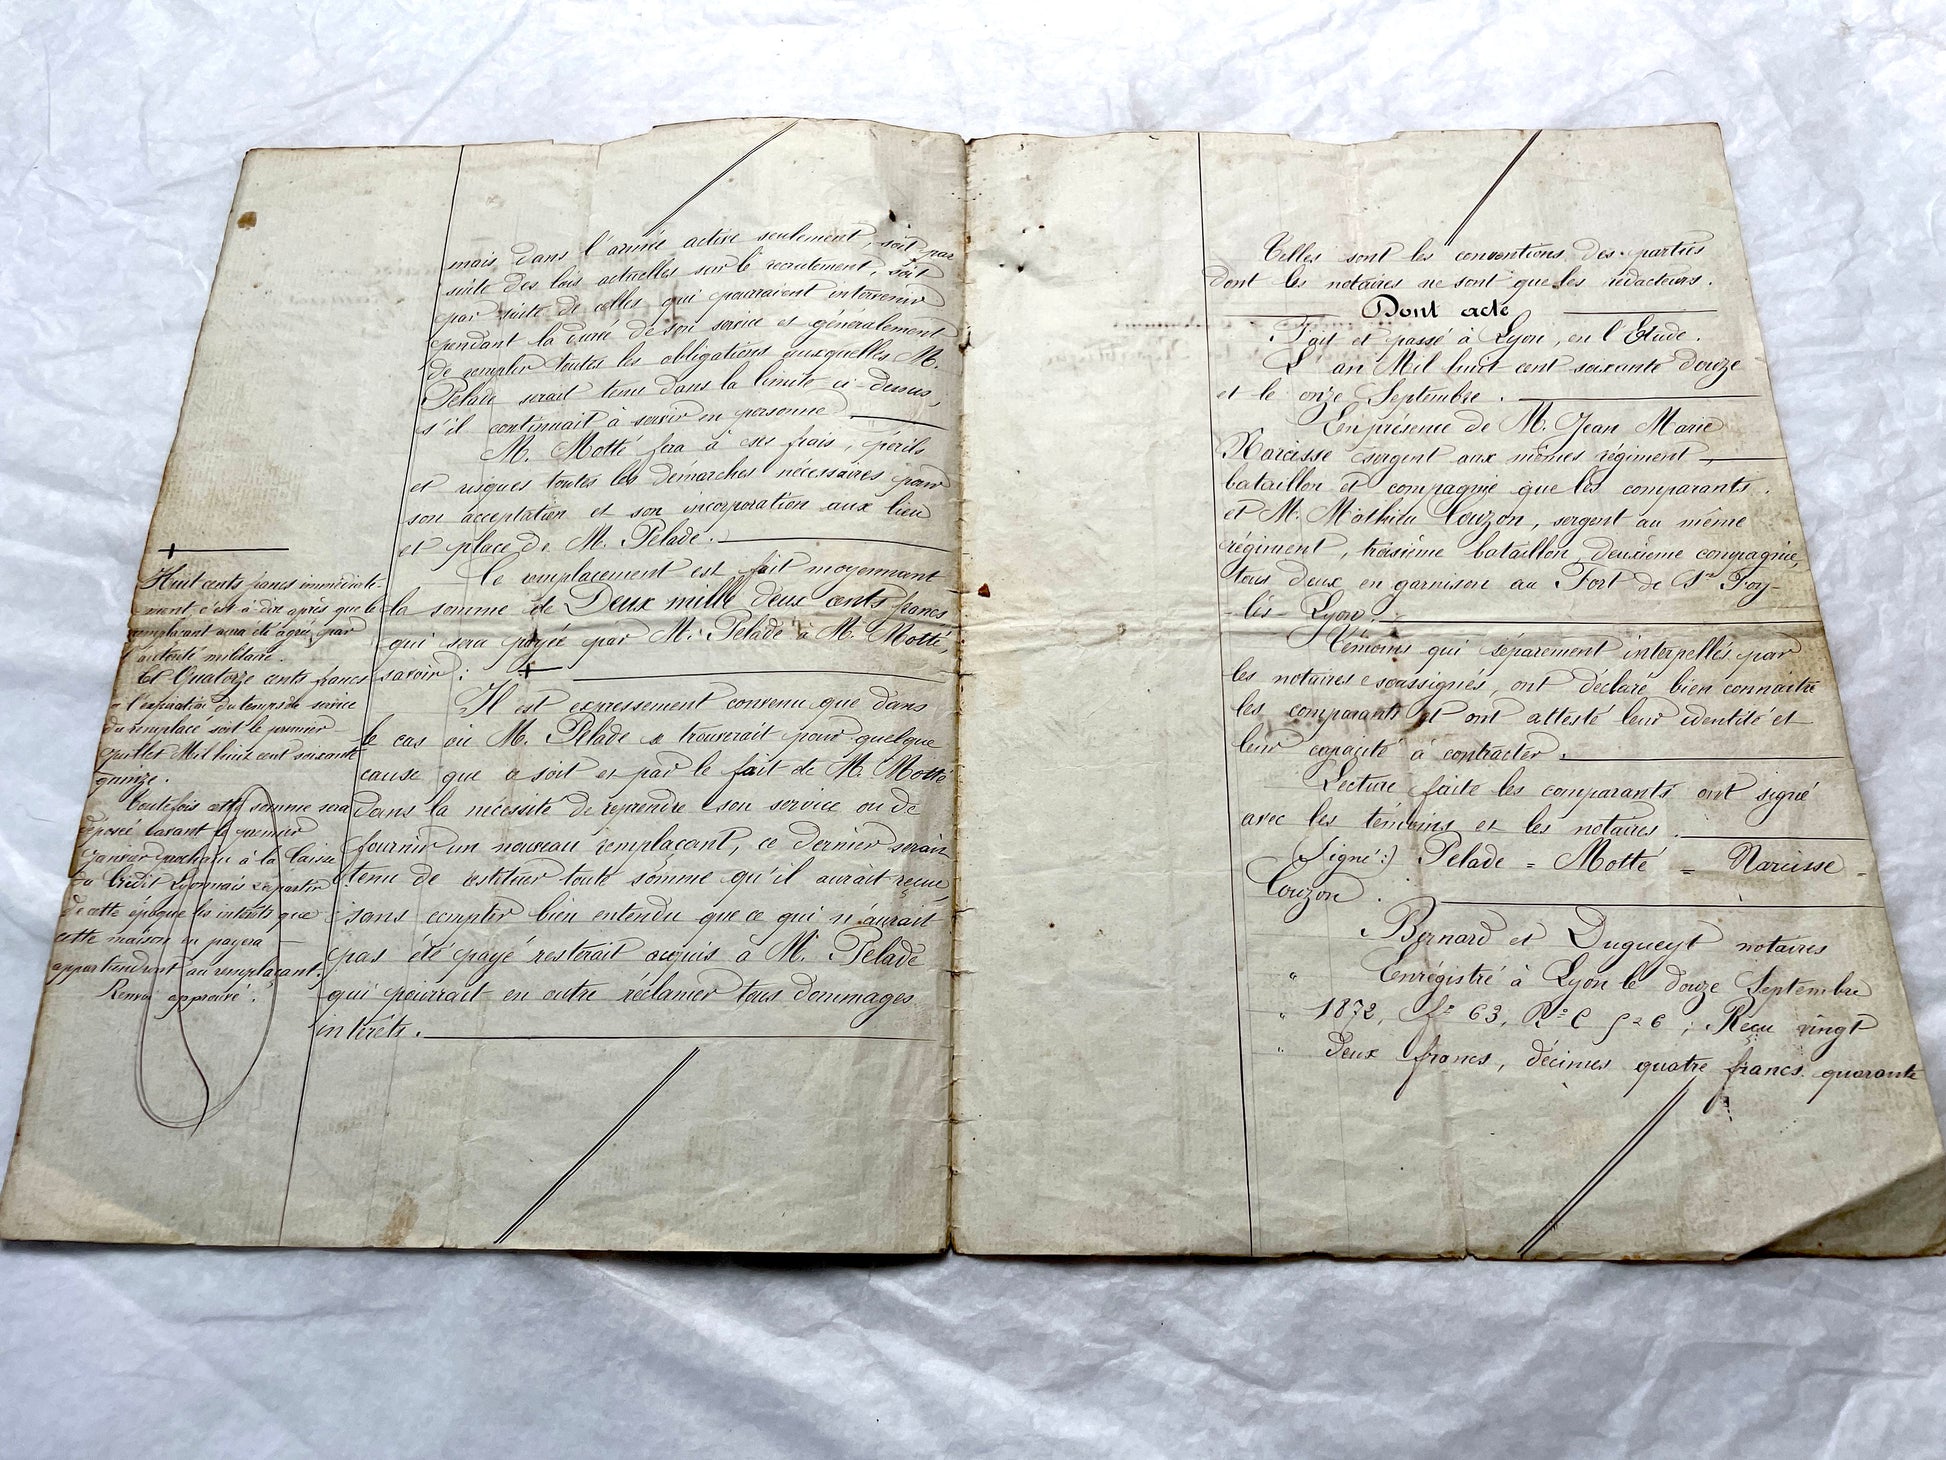 mais dans l'armée active seulement, soit par
suite des lois actuelles sur le recrutement, soit
par suite de celles qui pourraient intervenir
pendant la durée de son service et généralement
de remplir toutes les obligations auxquelles M.
Pelade serait tenu dans la limite ci-dessus,
s'il continuait à servir en personne
M. Motté fera à ses frais, périls
et risques toutes les démarches nécessaires pour
son acceptation et son incorporation aux lieu
et place de M. Pelade.
Le remplacement est fait moyennant
la somme de Deux mille deux cents francs
qui sera payée par M. Pelade à M. Motté,
savoir :
Il est expressement convenu que dans
le cas où M. Pelade se trouverait pour quelque
cause que ce soit et par le fait de M. Motté
dans la nécessité de reprendre son service ou de
fournir un nouveau remplacant, ce dernier serait
tenu de restituer toute somme qu'il aurait reçue,
sans compter bien entendu que ce qui n'aurait
pas été payé resterait acquis à M. Pelade
qui pourrait en outre réclamer tous dommages
intérêts.
Huit cents francs immédiate-
ment c'est-à-dire après que le
remplacant aura été agréé par
l'autorité militaire.
Et Quatorze cents francs
à l'expiration du temps de service
du remplacé soit le premier
juillet Mil huit cent soixante
quinze.
Toutefois cette somme sera
déposée avant le premier
janvier prochain à la Caisse
du Crédit Lyonnais à partir
de cette époque les intérêts que
cette maison en payera
appartiendront au remplaçant.
Renvoi approuvé.
Telles sont les conventions des parties
dont les notaires ne sont que les rédacteurs.
Dont acte
Fait et passé à Lyon, en l'Etude.
L'an Mil huit cent soixante douze
et le onze Septembre.
En présence de M. Jean Marie
Narcisse sergent aux mêmes régiment,
bataillon et compagnie que les comparants.
et M. Mathieu Couzon, sergent au même
régiment, troisième bataillon, deuxième compagnie,
tous deux en garnison au Fort de Ste Foy-
lès-Lyon.
Témoins qui séparement interpellés par
les notaires soussignés, ont déclaré bien connaitre
les comparants et ont attesté leur identité et
leur capacité à contracter.
Lecture faite les comparants ont signé
avec les témoins et les notaires.
(Signé:) Pelade = Motté = Narcisse =
Couzon.
Bernard et Dugueyt notaires
" Enrégistré à Lyon le douze Septembre
" 1872, fo 63, Ro C 6 ; Reçu vingt
" deux francs, décimes quatre francs quarante